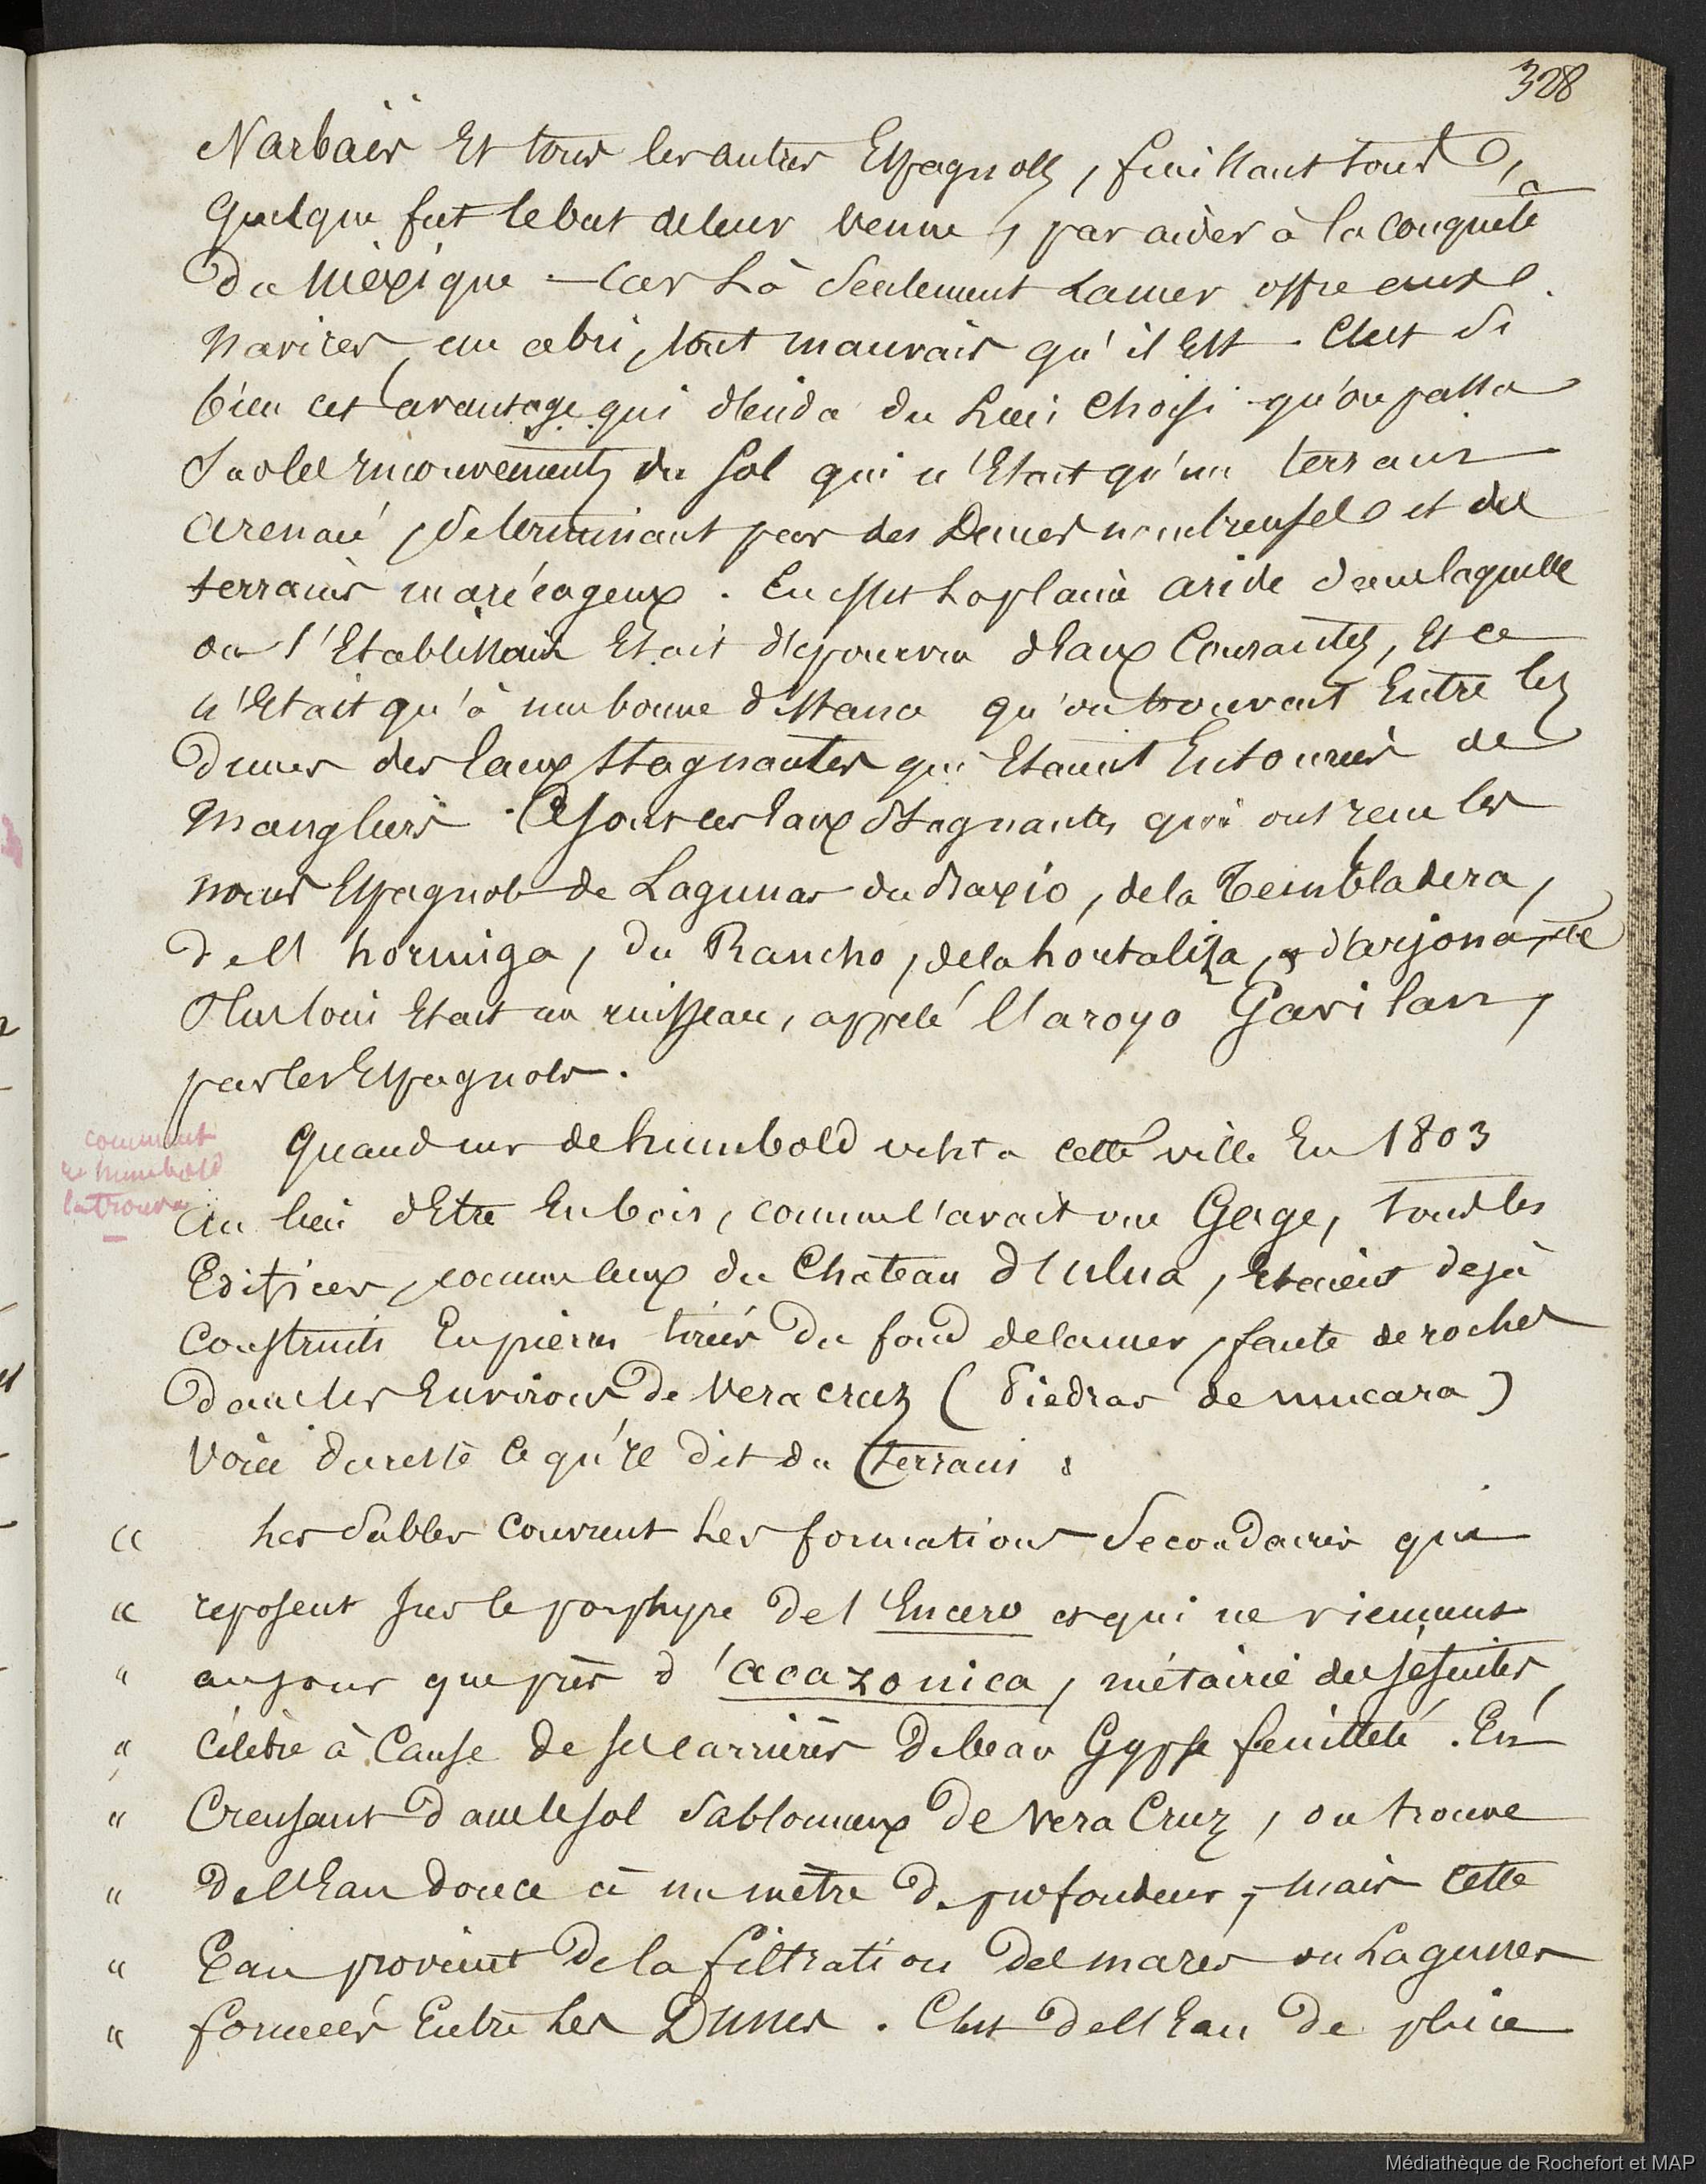 328
Narbaës Et tous les autres Espagnols, finissant tous,
quelque fut le but de leur venue, par aider à la conquete
du Méxique – Car Là Seulement La mer offre aux
navires, un abri, tout mauvais qu'il Est. C'est si
bien cet avantage qui décida du Lieu Choisi qu'on passa
sur les inconvenients du Sol qui n'Etait qu'un terrain
arenacé, se terminant par des Dunes nombreuses et des
terrains marécageux. En effet La plaine aride dans laquelle
on s'Etablissait Etait dépourvu d'Eaux Courantes, Et ce
n'Etait qu'à une bonne distance qu'on trouvait Entre les
dunes des Eaux Stagnantes qui Etaient Entourées de
mangliers. Ce sont ces Eaux Stagnantes qui ont reçu les
noms Espagnols de Lagunas du, de la Tembladera,
de la hormiga, du Rancho, de la hortaliza, & d'arjona, et
Plus loin Etait un ruisseau, appelé l'aroyo Gavilan,
par les Espagnols.
comment
Humbold
la trouva
Quand mr de humbold visita cette ville En 1803
au lieu d'Etre En bois, comme l'avait vue Gage, tous les
Edifices, comme ceux du Chateau d'Ulua, Etaient dejà
Construits En pierres tirées du fond de la mer, faute de roches
dans les Environs de Vera cruz (Piedras de mucara)
Voici du reste ce qu'il dit du terrain :
« Les Sables Couvrent Les formations Secondaires qui
« reposent sur le porphyre de l'Encero et qui ne viennent
« au jour que près d'acazonica, métairie des jésuites,
« Célèbre à Cause de ses carrières de beau Gypse feuilleté. En
« Creusant dans le sol Sablonneux de Vera Cruz, on trouve
« de l'Eau douce à un mètre de profondeur, mais cette
« Eau provient de la filtration des mares ou Lagunes
« formées Entre Les Dunes. C'est de l'Eau de pluie
Médiathèque de Rochefort et MAP